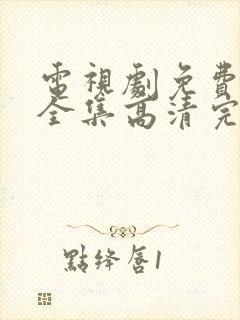 電視劇免費
全集高清完
點絳唇1